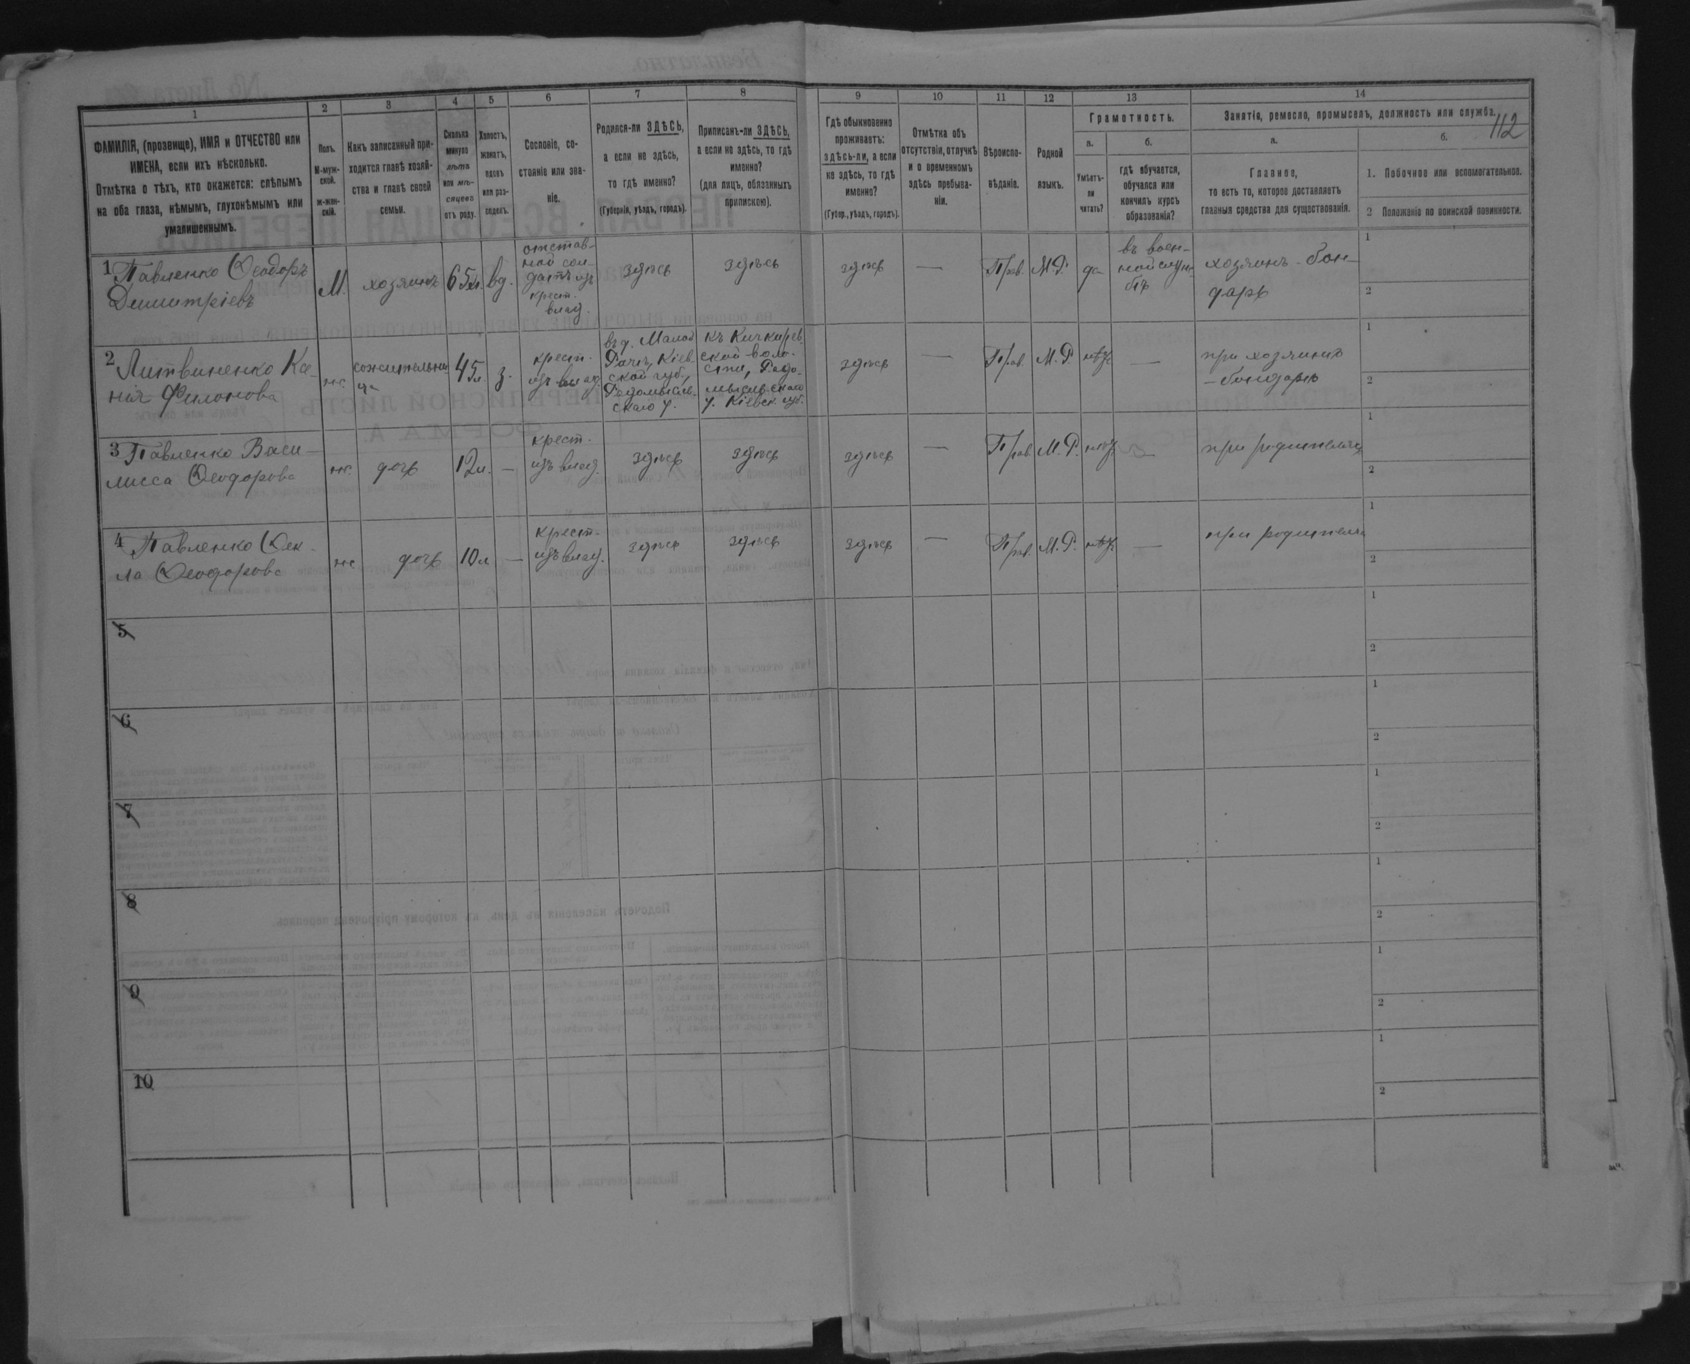 112
1 2 3 4 5 6 7 8 9 10 11 12 13 14
ФАМИЛІЯ, (прозвище), ИМЯ и ОТЧЕСТВО или
ИМЕНА, если ихъ нѣсколько.
Отмѣтка о тѣхъ, кто окажется: слѣпымъ
на оба глаза, нѣмымъ, глухонѣмымъ или
умалишеннымъ.
Полъ.
М-муж-
ской.
ж-жен-
скій.
Какъ записанный при-
ходится главѣ хозяй-
ства и главѣ своей
семьи.
Сколько
минуло
лѣтъ
или мѣ-
сяцевъ
отъ роду.
Холостъ,
женатъ,
вдовъ
или раз-
веденъ.
Сословіе, со-
стояніе или зва-
ніе.
Родился-ли ЗДѢСЬ,
а если не здѣсь,
то гдѣ именно?
(Губернія, уѣздъ, городъ).
Приписанъ-ли ЗДѢСЬ,
а если не здѣсь, то гдѣ
именно?
(для лицъ, обязанныхъ
припискою).
Гдѣ обыкновенно
проживаетъ:
здѣсь-ли, а если
не здѣсь, то гдѣ
именно?
(Губер., уѣздъ, городъ).
Отмѣтка объ
отсутствіи, отлучкѣ
и о временномъ
здѣсь пребыва-
ніи.
Вѣроиспо-
вѣданіе.
Родной
языкъ.
Грамотность.
а.
Умѣетъ-
ли
читать?
б.
гдѣ обучается,
обучался или
кончилъ курсъ
образованія?
Занятіе, ремесло, промыселъ, должность или служба.
а.
Главное,
то есть то, которое доставляетъ
главныя средства для существованія.
б.
1. Побочное или вспомогательное.
2 Положеніе по воинской повинности.
1 Павленко Ѳеодоръ
Димитріевъ
М.
хозяинъ
65л.
вд.
отстав-
ной сол-
датъ изъ
крест.
влад
здѣсь
здѣсь
здѣсь
—
Прав.
М.Р.
да
въ воен-
ной служ-
бѣ
хозяинъ - бон
дарь
1
2
2 Литвиненко Ка-
Филонова
ж.
сожительни
ца
45л.
з.
крест.
изъ влад.
въ д. Малой
Рачѣ, Кіев
ской губ.,
Радомысль-
скаго у.
къ Кичкирѣв
ской воло-
сти, Радо-
мысльскаго
у. Кіевск. губ.
здѣсь
—
Прав.
М.Р.
нѣт.
—
при хозяинѣ
- бондарѣ
1
2
3 Павленко Васи-
лисса Ѳеодорова
ж.
дочь
12л.
—
крест.
изъ влад.
здѣсь
здѣсь
здѣсь
—
Прав.
М.Р.
нѣт.
—
при родителѣ
1
2
4 Павленко Ѳек-
ла Ѳеодорова
ж
дочь
10л
—
крест.
изъ влад.
здѣсь
здѣсь
здѣсь
—
Прав.
М.Р.
нѣт.
—
при родителѣ
1
2
5
1
2
6
1
2
7
1
2
8
1
2
9
1
2
10
1
2